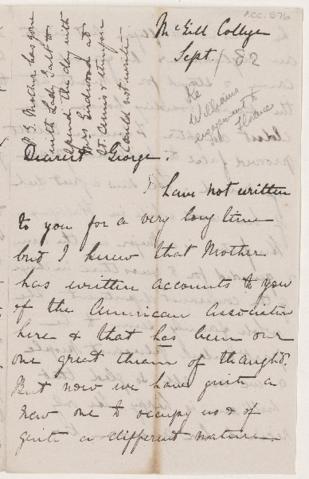 ACC. 876
McGill College
Sept / 82
P.S. Mother has gone
with Lady Galt to
spend the day with
Mrs Redwood at
St. Annes & therefore
could not write
Re
William's
engagement to
Dearest George.
I have not written
to you for a very long time
but I knew that Mother
has written accounts to you
of the American Association
here & that has been our
one great theme of thought.
But now we have quite a
new one to occupy us & of
quite a different nature.